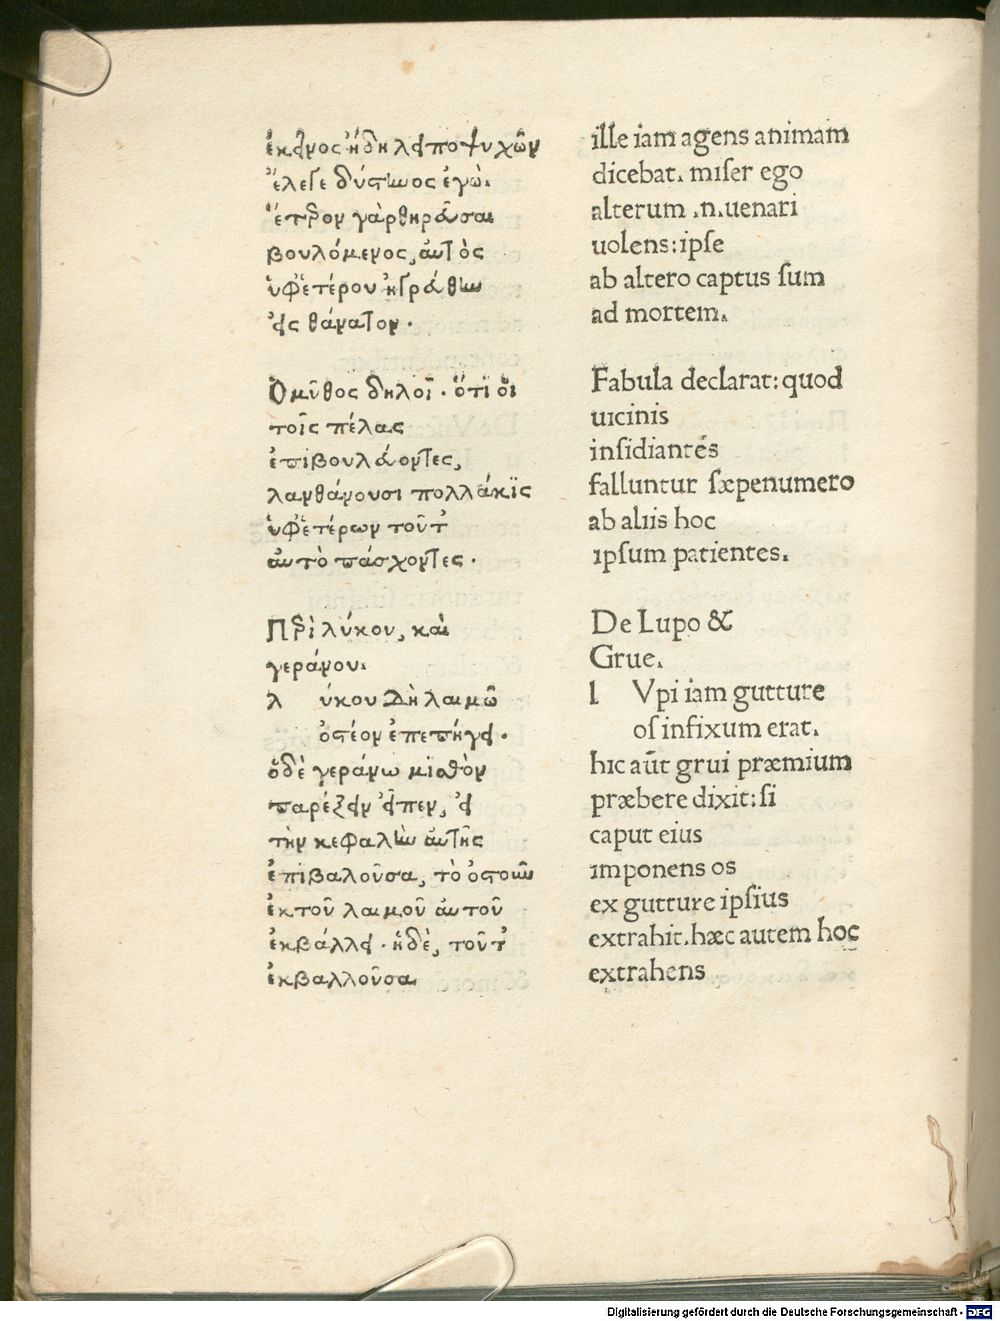 ἐκεῖνος ἤδη λειποψυχῶν
ἔλεγε δύστηνος ἐγώ.
ἕτερον γὰρ θηρεῦσαι
βουλόμενος, αὐτὸς
ὑφ ἑτέρου ἠγρεύθην
εἰς θάνατον.
Ὁ μῦθος δηλοῖ. ὅτι οἱ
τοῖς πέλας
ἐπιβουλεύοντες,
λανθάνουσι πολλάκις
ὑφ ἑτέρων τοῦτ
αὐτὸ πάσχοντες.
Περὶ λύκου, καὶ
γεράνου.
λ ύκου δὴ λαιμῶ
ὀστέον ἐπεπήγει.
ὁ δὲ γεράνω μισθὸν
παρέξειν εἶπεν, εἰ
τὴν κεφαλὴν αὐτῆς
ἐπιβαλοῦσα, τὸ ὀστοῦν
ἐκ τοῦ λαιμοῦ αὐτοῦ
ἐκβάλλει. ἡ δὲ, τοῦτ
ἐκβαλλοῦσα
ille iam agens animam
dicebat. miser ego
alterum .n. uenari
uolens: ipse
ab altero captus sum
ad mortem.
Fabula declarat: quod
uicinis
insidiantes
falluntur sæpenumero
ab aliis hoc
ipsum patientes.
De Lupo &
Grue.
l Vpi iam gutture
os infixum erat.
hic aūt grui præmium
præbere dixit: si
caput eius
imponens os
ex gutture ipsius
extrahit. hæc autem hoc
extrahens
Digitalisierung gefördert durch die Deutsche Forschungsgemeinschaft - DFG